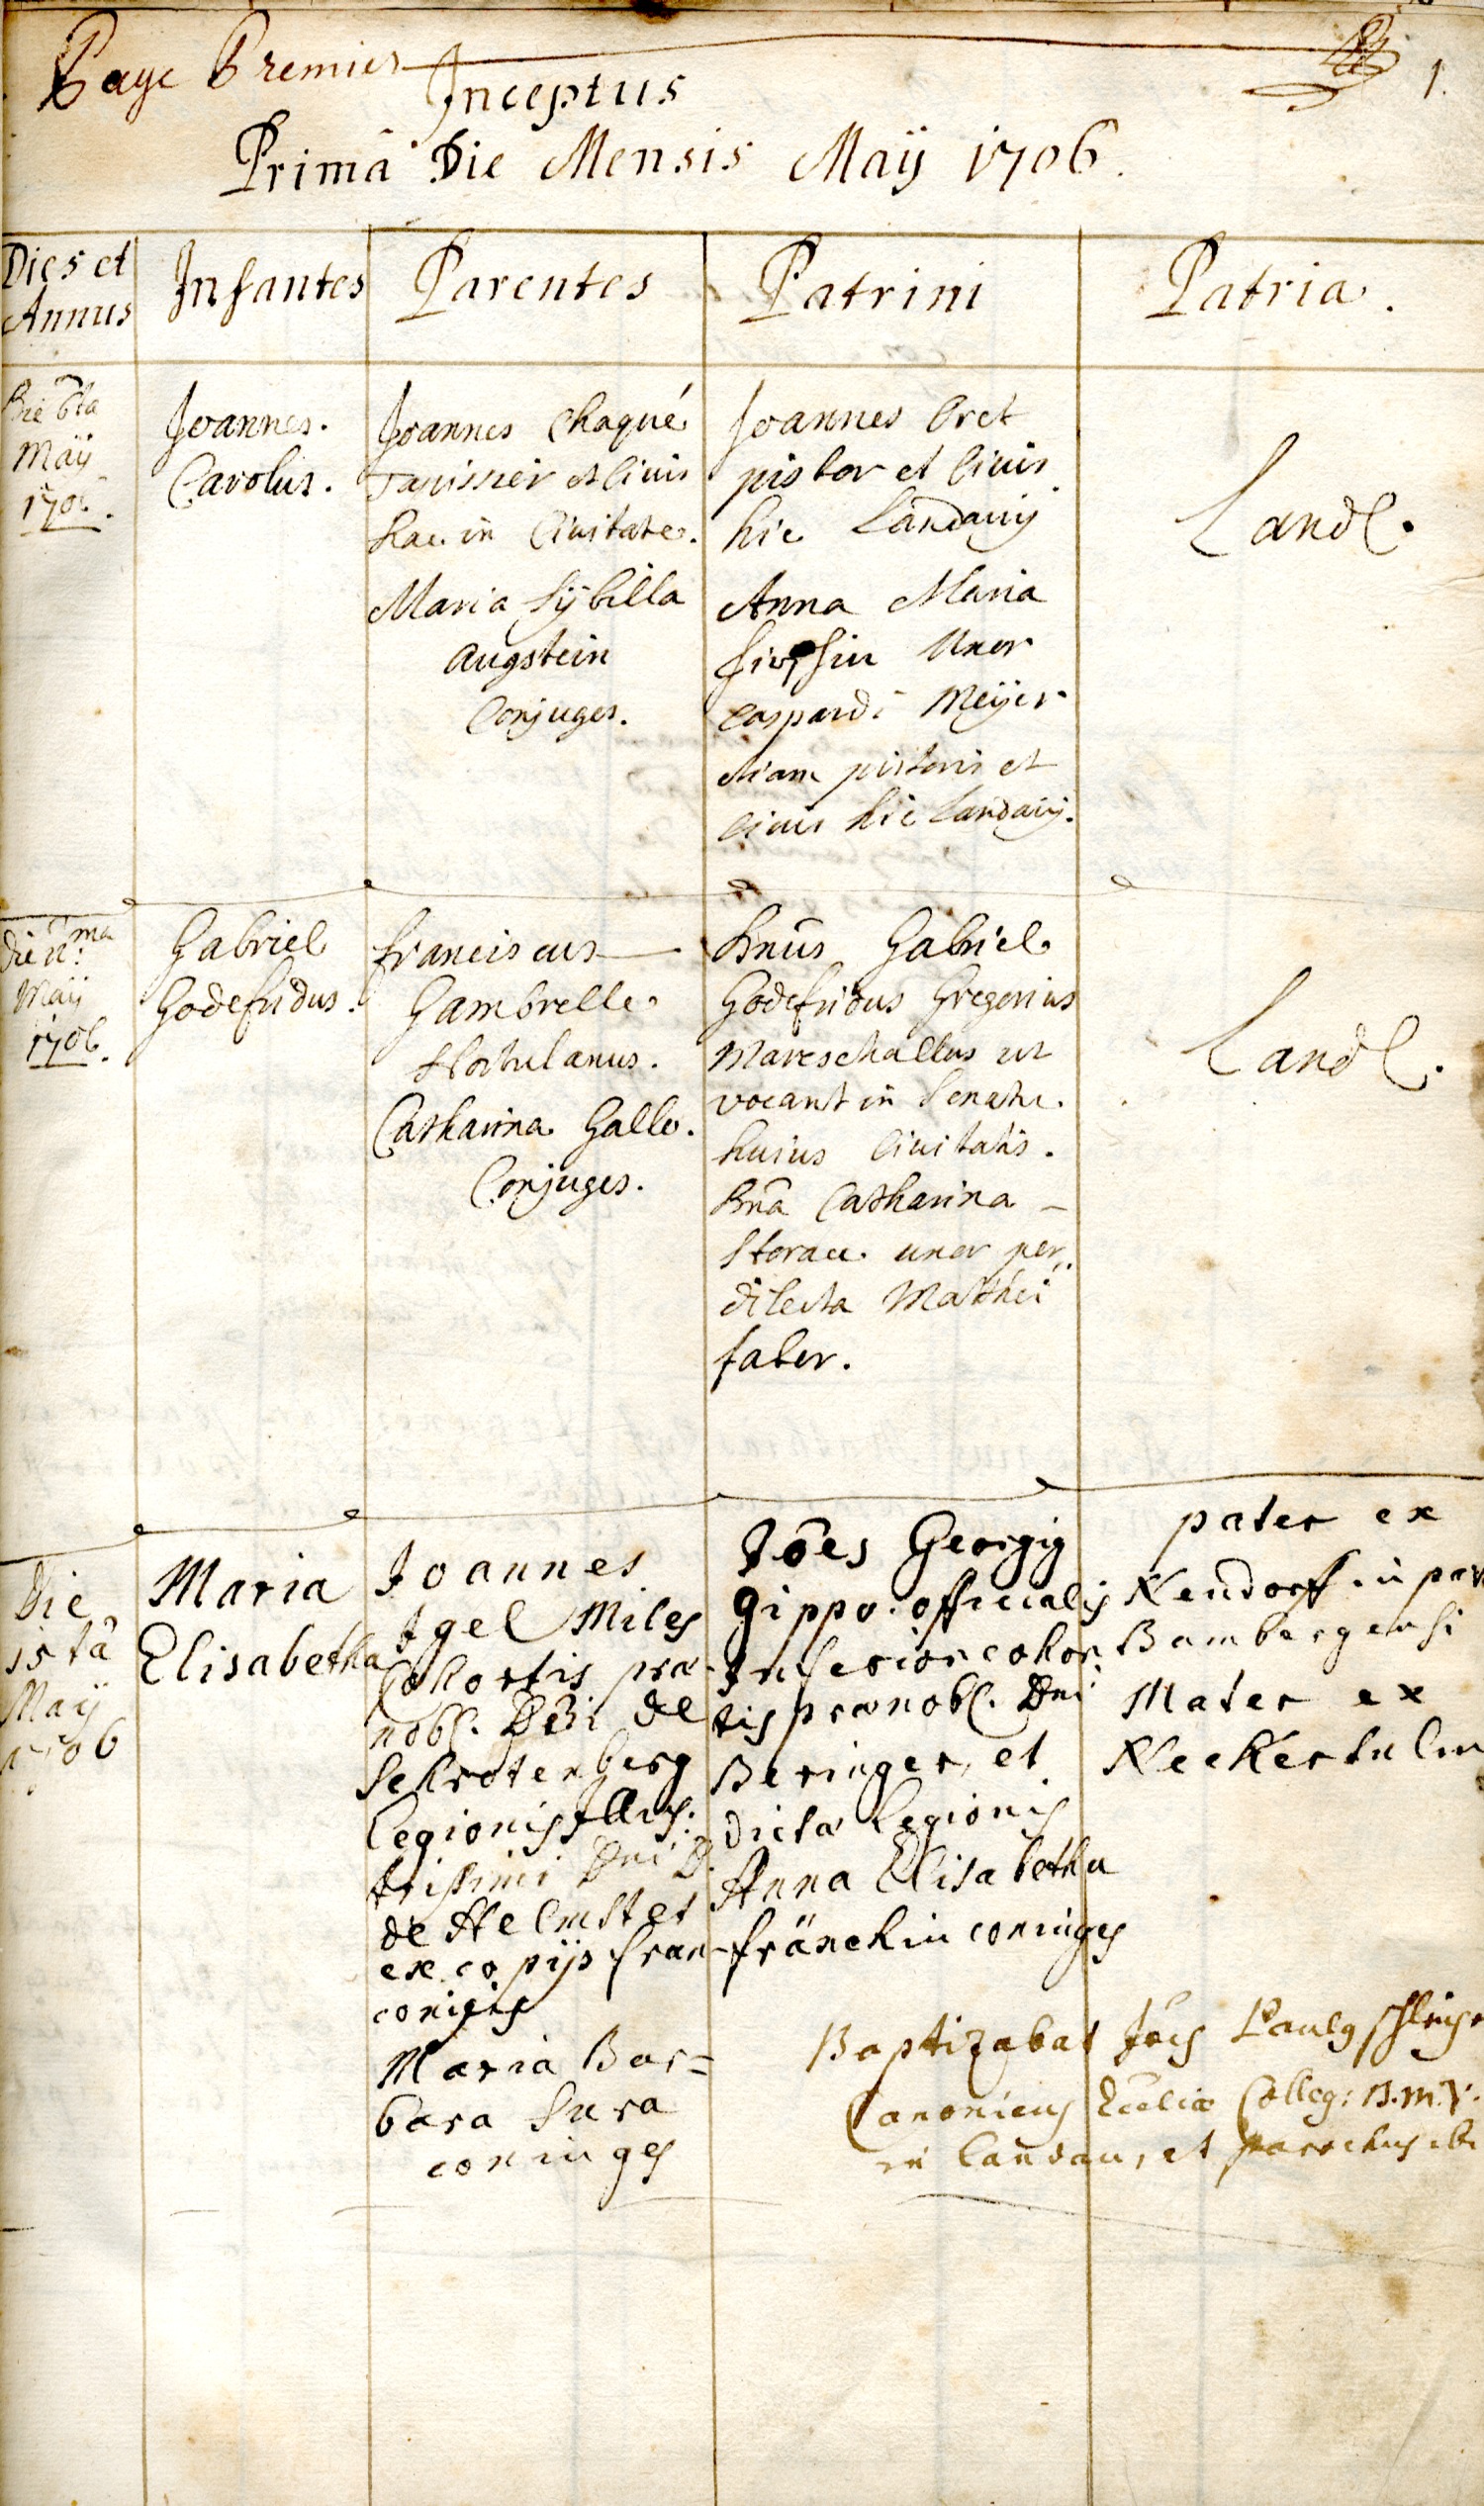 Page Premier
1.
Inceptus
Primâ Die Mensis Maÿ 1706.
Dies et
Annus
Infantes
Parentes
Patrini
Patria.
Die 6ta
Maÿ
1706.
Joannes.
Carolus.
Joannes Chaqué
Tapissier et Civis
hac in Civitate.
Maria Sÿbilla
Augstein
Conjuges.
Joannes Bret
pistor et Civis
hic Landavij
Anna Maria
Uxor
Caspardi Meÿer
etiam pistoris et
civis hic Landavij.
Landl.
die 11ma
Maÿ
1706.
Gabriel
Godefridus.
Franciscus
Gambrelle
Hortulanus.
Catharina Galle.
Conjuges.
Dnūs Gabriel
Godefridus Gregorius
Mareschallus ut
vocant in Senatu
huius Civitatis.
Dnā Catharina
Storace uxor per„
dilecta Matthei
faber.
Landl.
Die
15tâ
Maÿ
1706
Maria
Elisabetha
Joannes
Igel Miles
Cohortis præ-
nobl. Dni de
Schrotenberg
Legionis Illus:
trissimi Dni D.
de Helmstet
ex copijs fran-
conicis
Maria Bar=
bara Sura
coniuges
Jōes Georgig
Gippr. officialis
Inferior cohor
tis prænobl. Dni
Beringer, et
dictæ Legionis
Anna Elisabetha
fränckin coniuges
pater ex
Neudorff in par
Bambergensi
Mater ex
Neckersulm
Baptizabat Jōes Paulg
Canonicus Eccliæ Colleg: B.M.V.
in Landau, et parochus ibi